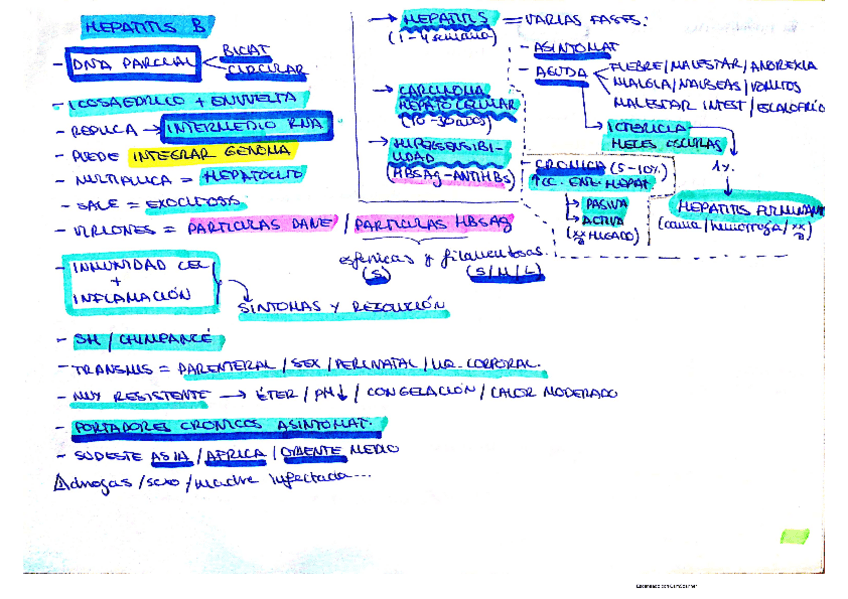 HEPATITIS B
- DNA PARCIAL
BICAT
CIRCULAR
- ICOSAEDRICO + ENVUELTA
- REPLICA → INTERMEDIO RNA
- PUEDE INTEGRAR GENOMA
- MULTIPLICA = HEPATOCITO
- SALE = EXOCITOSIS
- VIRIONES = PARTICULAS DANE / PARTICULAS HBSAG
esfericas y filamentosas.
(S) (S/M/L)
- INMUNIDAD CEL
+
INFLAMACIÓN
SÍNTOMAS Y RESOLUCIÓN
- SH / CHIMPANCÉ
- TRANSMIS = PARENTERAL / SEX / PERINATAL / LIQ. CORPORAL.
- MUY RESISTENTE → ÉTER / PH↓ / CONGELACIÓN / CALOR MODERADO
- PORTADORES CRONICOS ASINTOMAT.
- SUDESTE ASIA / AFRICA / ORIENTE MEDIO
⚠drogas / sexo / madre infectada...
→ HEPATITIS = VARIAS FASES:
(1-4 semana)
→ CARCINOMA
HEPATOCELULAR
(10-30 años)
→ HIPERSENSIBI-
LIDAD
(HBSAg-ANTIHBS)
- ASINTOMAT
- AGUDA
FIEBRE / MALESTAR / ANOREXIA
MIALGIA / NAUSEAS / VOMITOS
MALESTAR INTEST / ESCALOFRÍO
→ ICTERICIA
HECES OSCURAS
1%
HEPATITIS FULMINANT
- CRONICA (5-10%)
↑CC. ENZ. HEPAT
→ PASIVA
→ ACTIVA
HIGADO)